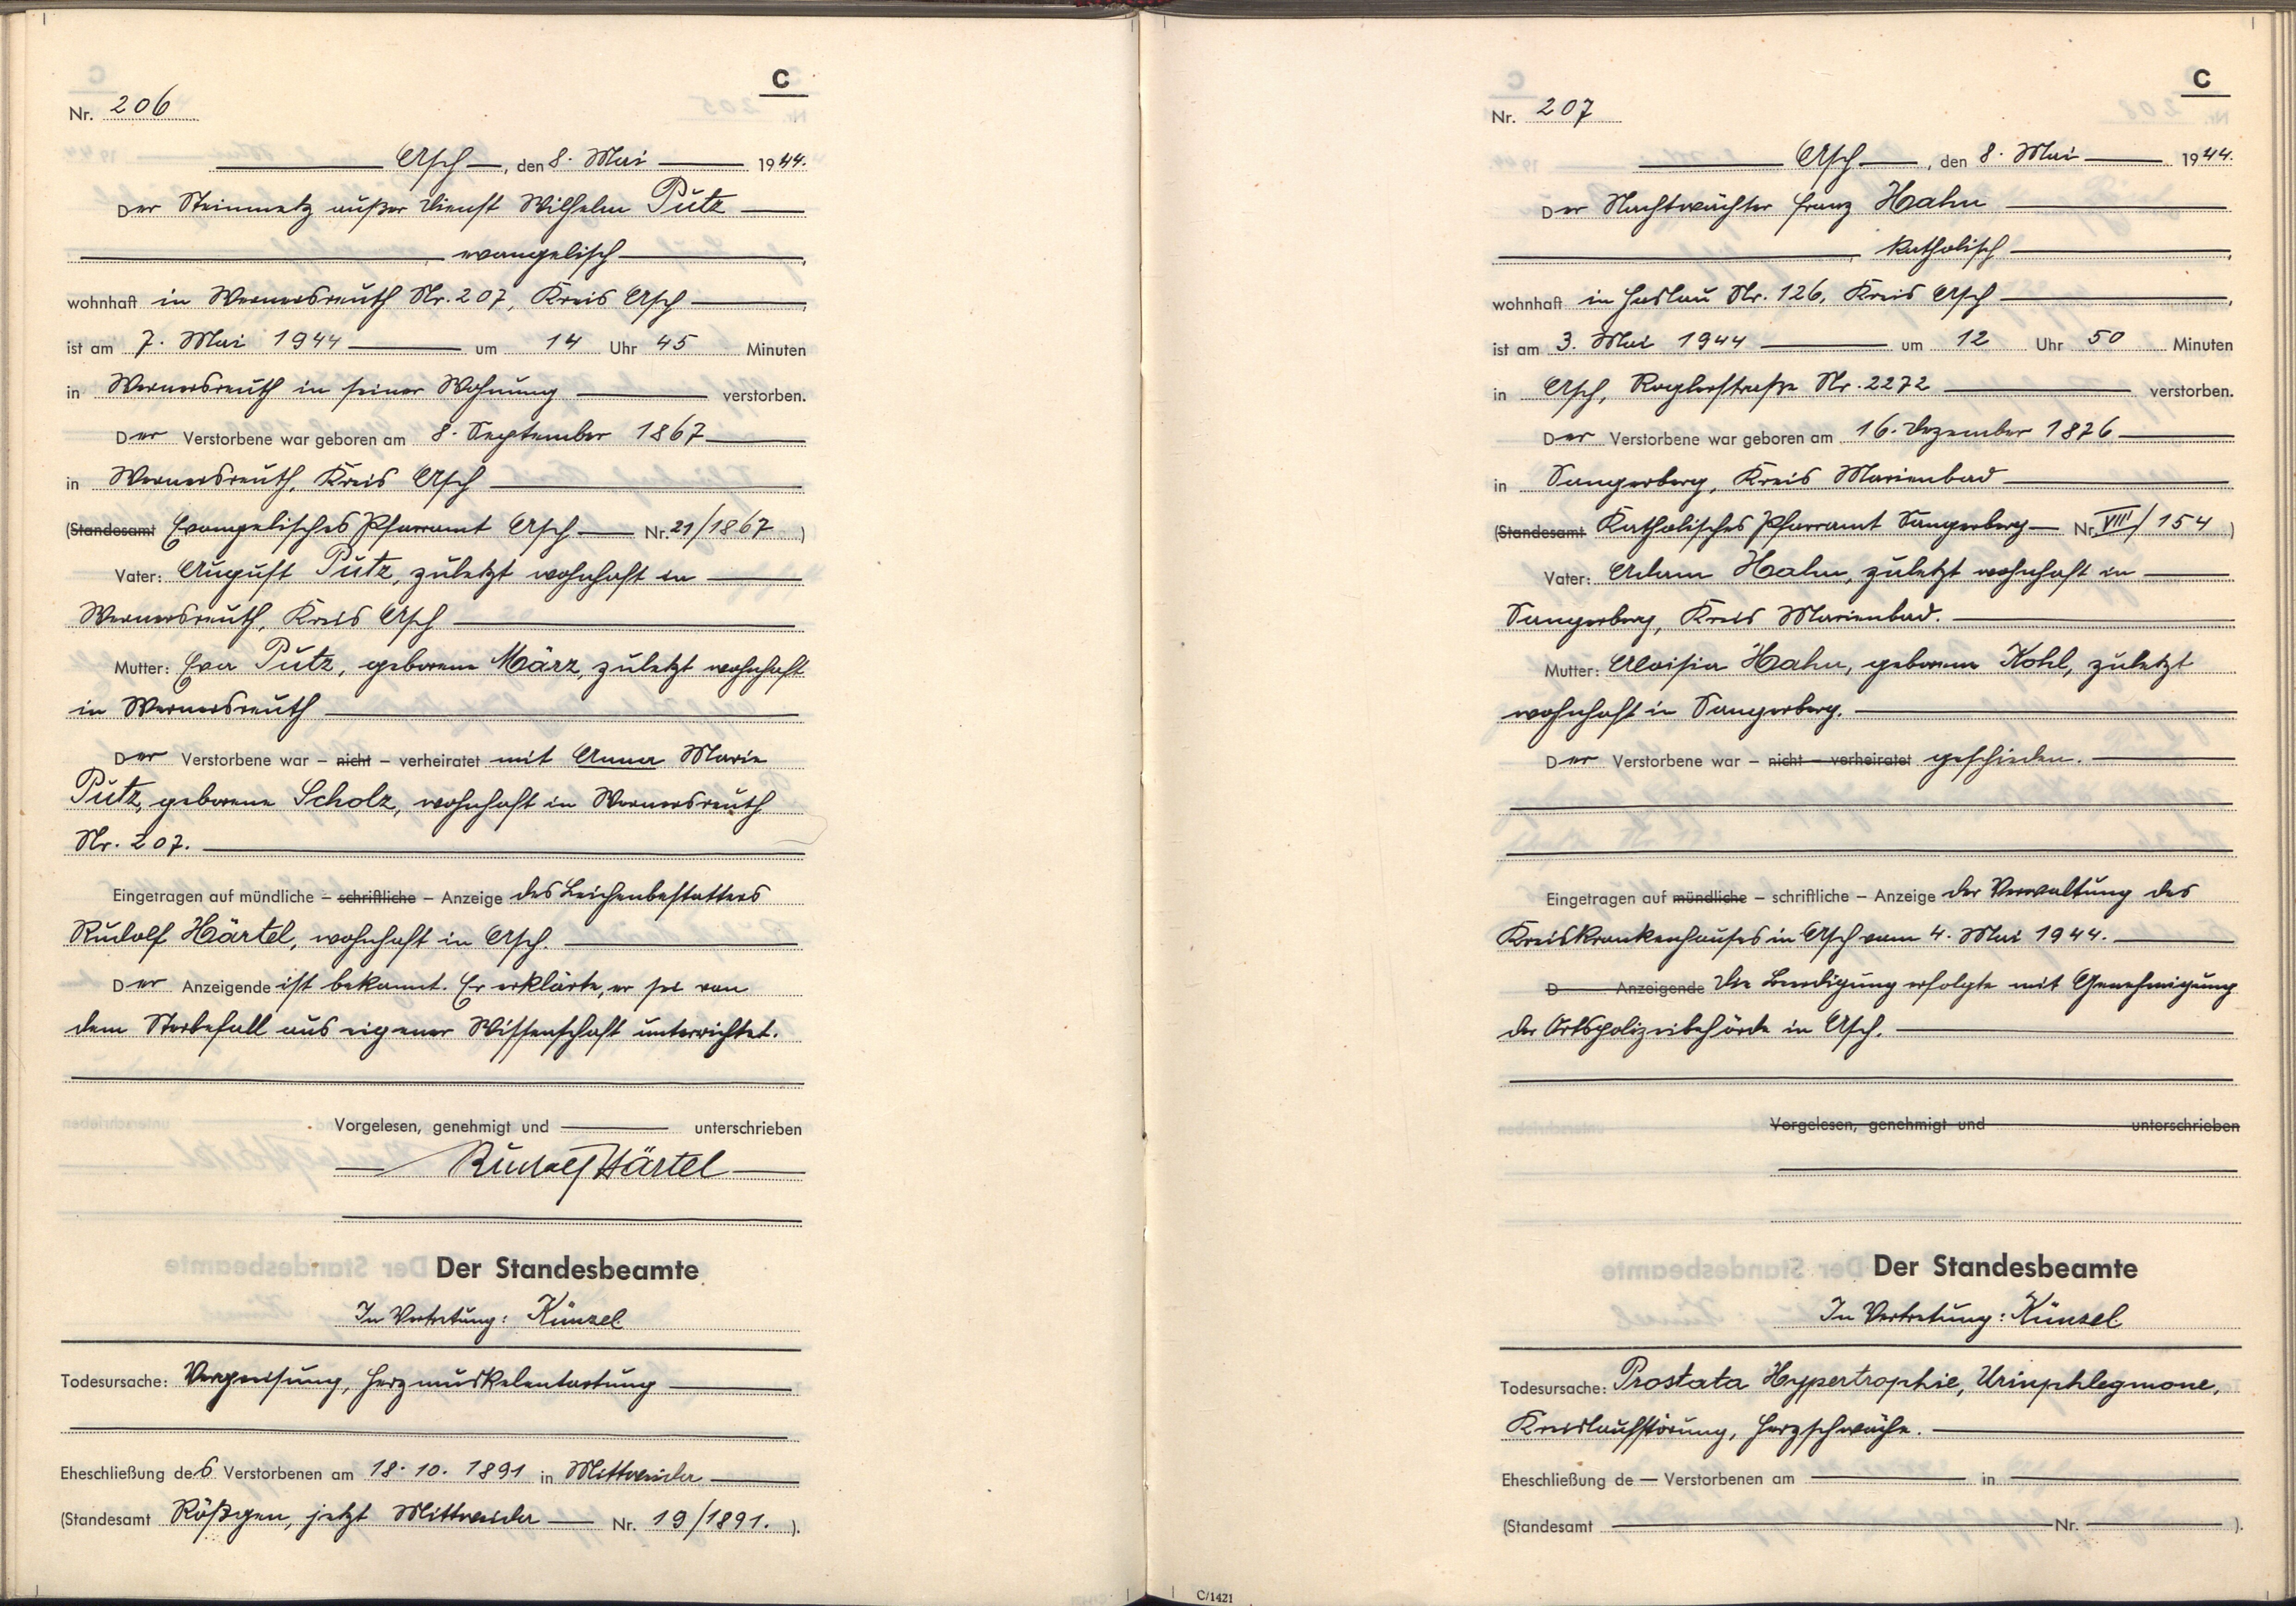 C
Nr. 206
Asch, den 8. Mai 1944.
Der Steinmetz außer Dienst Wilhelm Pütz
evangelisch,
wohnhaft in Wernersreuth Nr. 207, Kreis Asch,
ist am 7. Mai 1944 um 14 Uhr 45 Minuten
in Wernersreuth in seiner Wohnung verstorben.
Der Verstorbene war geboren am 8. September 1867
in Wernersreuth, Kreis Asch
(Standesamt Evangelisches Pfarramt Asch Nr. 21/1867)
Vater: August Pütz, zuletzt wohnhaft in
Wernersreuth, Kreis Asch
Mutter: Eva Pütz, geborene März, zuletzt wohnhaft
in Wernersreuth
Der Verstorbene war – nicht – verheiratet mit Anna Marie
Pütz, geborene Scholz, wohnhaft in Wernersreuth
Nr. 207.
Eingetragen auf mündliche – schriftliche – Anzeige des Leichenbestatters
Rudolf Härtel, wohnhaft in Asch.
Der Anzeigende ist bekannt. Er erklärte, er sei von
dem Sterbefall aus eigener Wissenschaft unterrichtet.
Vorgelesen, genehmigt und unterschrieben
Rudolf Härtel
Der Standesbeamte
In Vertretung: Künzel
Todesursache: Vergreisung, Herzmuskelentartung
Eheschließung des Verstorbenen am 18.10.1891 in Mittweida
(Standesamt Rößgen, jetzt Mittweida Nr. 19/1891.).
C
Nr. 207
Asch, den 8. Mai 1944.
Der Nachtwächter Franz Hahn
, katholisch,
wohnhaft in Haslau Nr. 126, Kreis Asch,
ist am 3. Mai 1944 um 12 Uhr 50 Minuten
in Asch, Roglerstraße Nr. 2272 verstorben.
Der Verstorbene war geboren am 16. Dezember 1876
in Sangerberg, Kreis Marienbad
(Standesamt Katholisches Pfarramt Sangerberg Nr. VIII/154)
Vater: Adam Hahn, zuletzt wohnhaft in
Sangerberg, Kreis Marienbad.
Mutter: Aloisia Hahn, geborene Kohl, zuletzt
wohnhaft in Sangerberg.
Der Verstorbene war – nicht – verheiratet geschieden.
Eingetragen auf mündliche – schriftliche – Anzeige der Verwaltung des
Kreiskrankenhauses in Asch vom 4. Mai 1944.
D Anzeigende Die Beerdigung erfolgte mit Genehmigung
der Ortspolizeibehörde in Asch.
Vorgelesen, genehmigt und unterschrieben
Der Standesbeamte
In Vertretung: Künzel
Todesursache: Prostata Hypertrophie, Urinphlegmone,
Kreislaufstörung, Herzschwäche.
Eheschließung de Verstorbenen am in
(Standesamt Nr. ).
C/1421